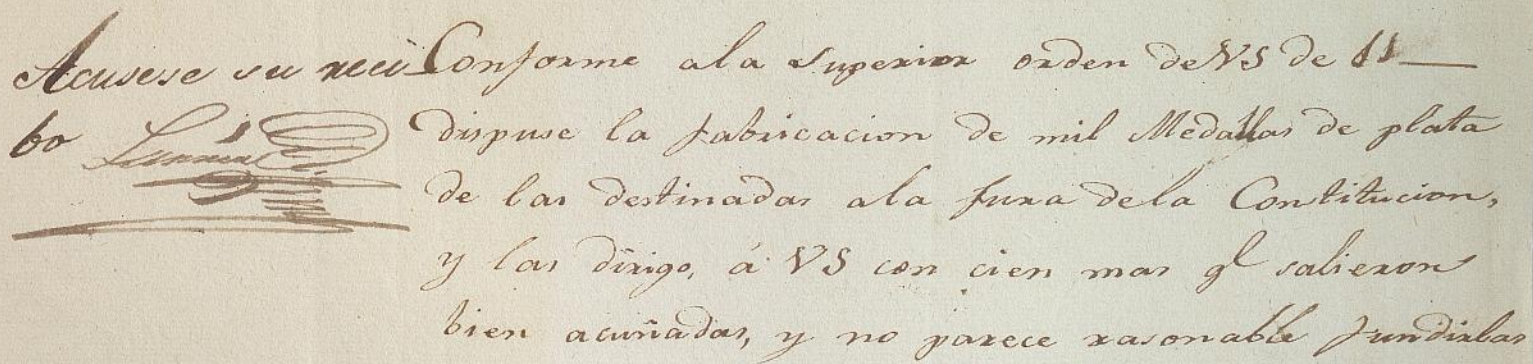 Acusese su reci
bo
Conforme ala Superior orden de VS de 11
dispuse la fabricacion de mil Medallas de plata
de las destinadas ala Jura dela Constitucion,
y las dirigo, á VS con cien mas qe salieron
bien acuñadas, y no parece rasonable fundirlas